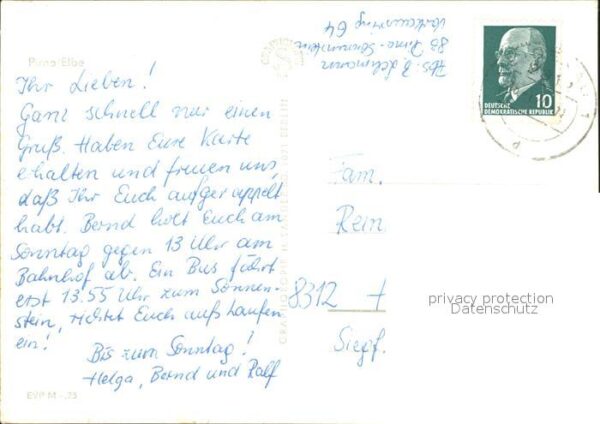 Pirna/Elbe
Ihr Lieben!
Ganz schnell nur einen
Gruß. Haben Eure Karte
erhalten und freuen uns,
daß Ihr Euch aufgerappelt
habt. Bernd holt Euch am
Sonntag gegen 13 Uhr am
Bahnhof ab. Ein Bus fährt
erst 13.55 Uhr zum Sonnen-
stein, richtet Euch aufs Laufen
ein!
Bis zum Sonntag!
Helga, Bernd und Ralf
EVP M -,25
Abs. B. Lehmann
83 Pirna-Sonnenstein
64
DEUTSCHE
DEMOKRATISCHE REPUBLIK
10
Fam.
Rein
8312
Siegf.
privacy protection
Datenschutz